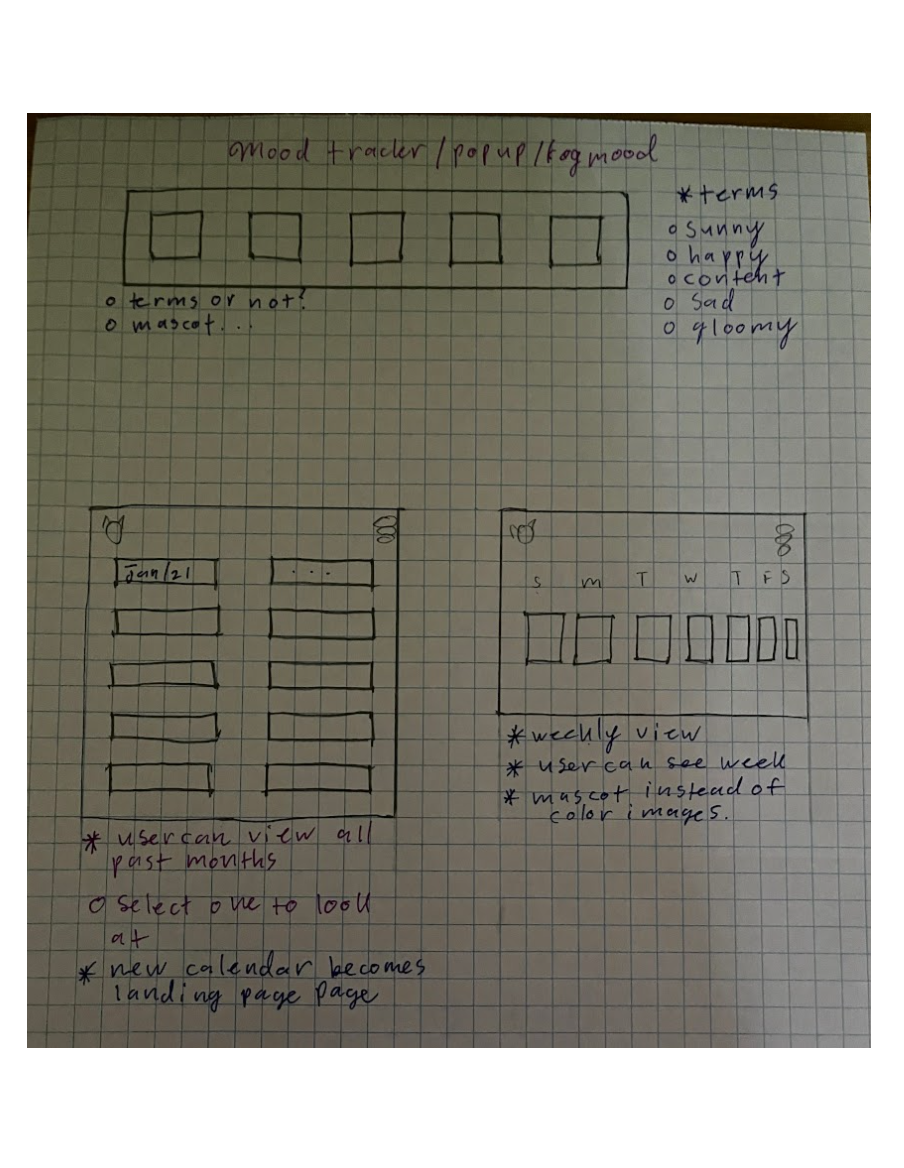 mood tracker/popup/ mood
* terms
o sunny
o happy
o content
o sad
o gloomy
o terms or not?
o mascot...
Jan/21
...
* user can view all
past months
o Select one to look
at
* new calendar becomes
landing page page
S M T W T F S
* weekly view
* user can see week
* mascot instead of
color images.